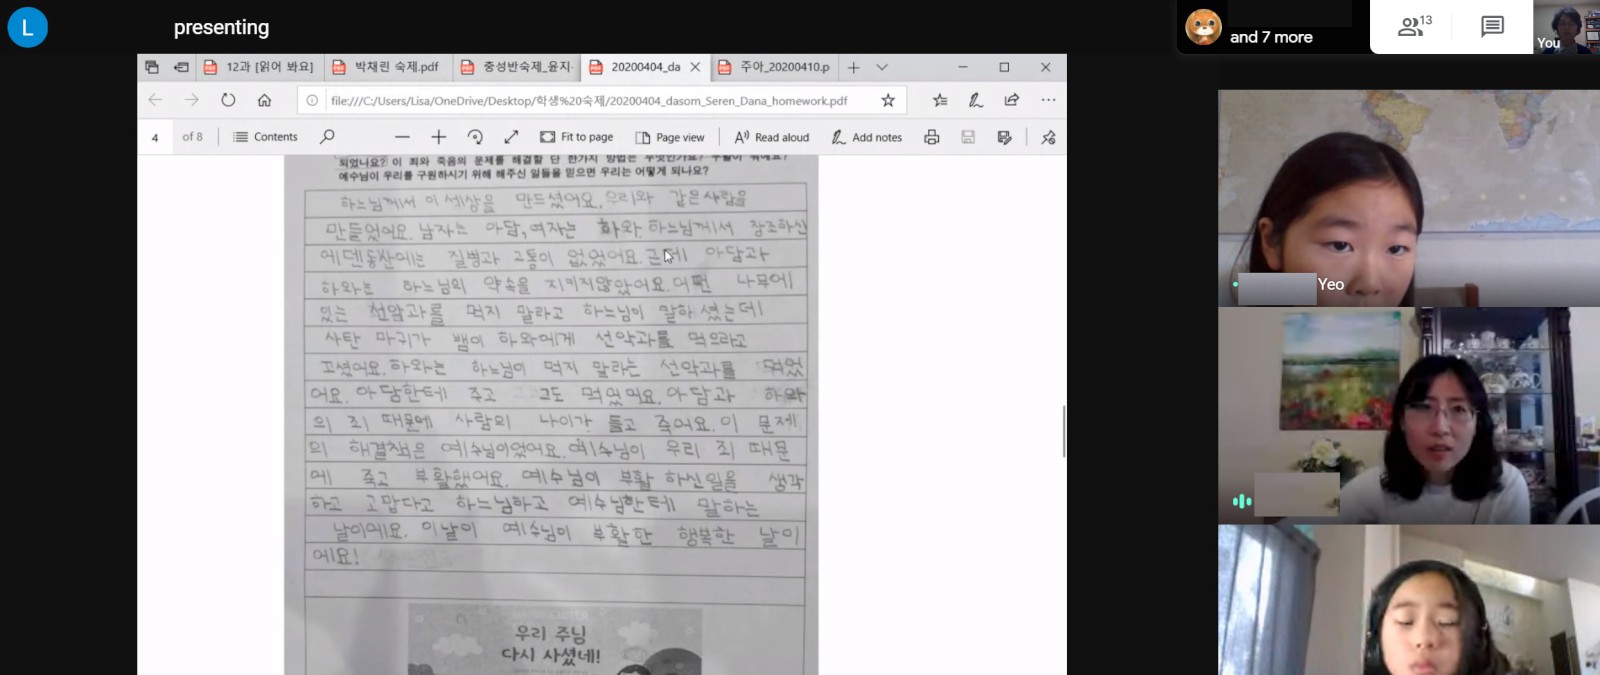 L
presenting
and 7 more
13
You
12과 [읽어 봐요]
박채린 숙제.pdf
중성반숙제_윤지
20200404_da
주아_20200410.p
file:///C:/Users/Lisa/OneDrive/Desktop/학생%20숙제/20200404_dasom_Seren_Dana_homework.pdf
4 of 8 Contents Fit to page Page view Read aloud Add notes
되었나요? 이 죄와 죽음의 문제를 해결할 단 한가지 방법은 무엇인가요?
예수님이 우리를 구원하시기 위해 해주신 일들을 믿으면 우리는 어떻게 되나요?
하느님께서 이 세상을 만드셨어요. 우리와 같은 사람을
만들었어요. 남자는 아담, 여자는 하와. 하느님께서 창조하신
에덴동산에는 질병과 고통이 없었어요. 근데 아담과
하와는 하느님의 약속을 지키지않았어요. 어떤 나무에
있는 선악과를 먹지 말라고 하느님이 말하셨는데
사탄 마귀가 뱀이 하와에게 선악과를 먹으라고
꼬셨어요. 하와는 하느님이 먹지 말라는 선악과를 먹었
어요. 아담한테 주고 그도 먹었어요. 아담과 하와
의 죄 때문에 사람의 나이가 들고 죽어요. 이 문제
의 해결책은 예수님이었어요. 예수님이 우리 죄 때문
에 죽고 부활했어요. 예수님이 부활 하신일을 생각
하고 고맙다고 하느님하고 예수님한테 말하는
날이에요. 이날이 예수님이 부활한 행복한 날이
에요!
우리 주님
다시 사셨네!
Yeo